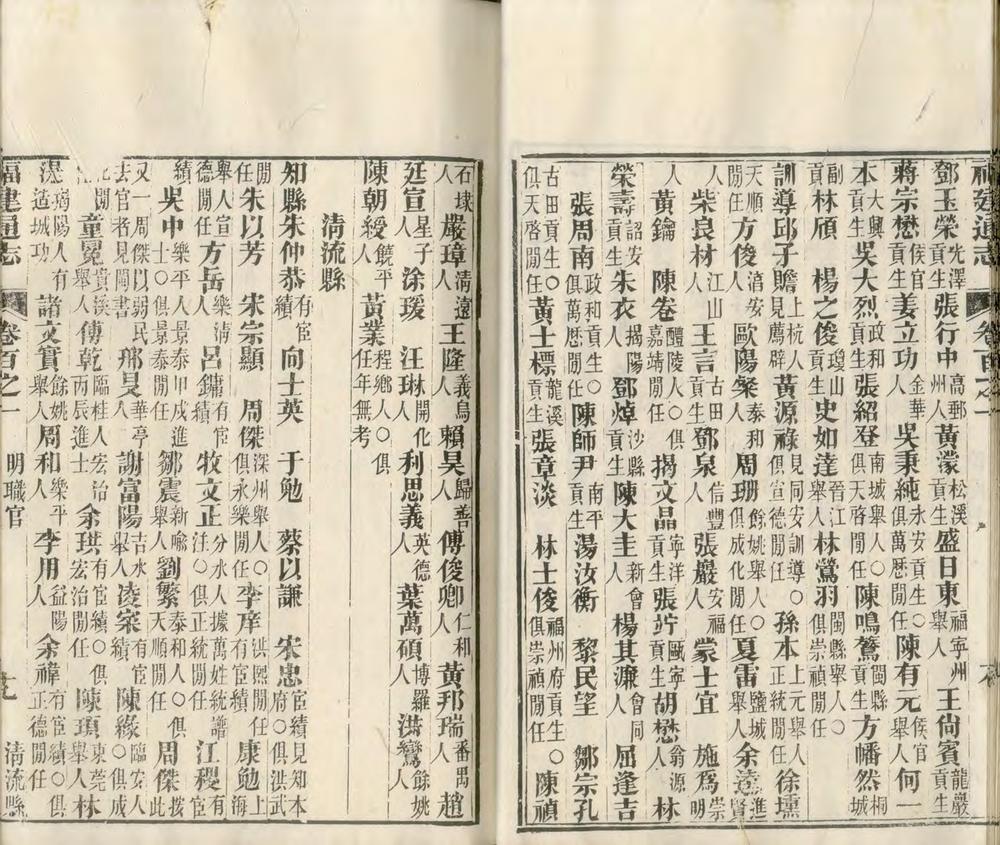 福建通志 卷百之一
鄧玉榮光澤貢生張行中高郵州人黃濛松溪貢生盛日東福寧州舉人王尚賓龍巖貢生
蔣宗懋侯官貢生姜立功金華人吳秉純永安貢生○俱萬曆閒任陳有元侯官舉人何一
本大興貢生吳大烈政和貢生張紹登南城舉人○俱天啓閒任陳鳴鶱閩縣貢生方幡然桐城
副貢林頎 楊之俊瓊山貢生史如逵晉江舉人林鶯羽閩縣舉人○俱崇禎閒任
訓導邱子瞻上杭人見薦辟黃源祿見同安訓導○俱宣德閒任孫本上元舉人正統閒任徐壎
天順閒任方俊淯安人歐陽粲泰和人周珊餘姚舉人○俱成化閒任夏雷鹽城舉人余遠進賢
人 柴良材江山人王言古田人鄧泉信豐人張嚴安福人蒙士宜 施爲崇明
人 黃鑰 陳卷醴陵人○俱嘉靖閒任揭文晶寧洋貢生張竚甌寧貢生胡懋翁源人林
榮壽詔安貢生朱衣揭陽人鄧焯沙縣貢生陳大圭新會人楊其濂會同人屈逢吉
張周南政和貢生○俱萬曆閒任陳師尹南平貢生湯汝衡 黎民望 鄒宗孔
古田貢生○俱天啓閒任黃士標龍溪貢生張章淡 林士俊福州府貢生○俱崇禎閒任陳禎
石埭人嚴璋清遠人王隆義烏人賴昊歸善人傅俊卿仁和人黃邦瑞番禺人趙
廷宣星子人涂瑗 汪琳開化人利思義英德人葉萬碩博羅人洪鸞餘姚人
陳朝綬饒平人黃業程鄉人○俱任年無考
清流縣
知縣朱仲恭有宦績向士英 于勉 蔡以謙 宋忠宦績見知本府○俱洪武
閒任朱以芳 宋宗顯 周傑深州舉人○俱永樂閒任李庠洪熙閒任有宦績康勉上海
舉人宣德閒任方岳樂清人呂鏞有宦績牧文正分水人據萬姓統譜注○俱正統閒任江稷有宦
績 吳申樂平人景泰甲戌進士○俱景泰閒任鄒震新喻舉人劉繁泰和人○俱天順閒任周傑按此
又一周傑以弱民去官者見閩書邢昊華亭人謝富陽吉水舉人凌寀有宦績陳緣臨安人○俱成
化閒任 童冕貴溪舉人傅乾臨桂人宏治丙辰進士余珙有宦績○俱宏治閒任陳頊東莞舉人林
混莆陽人有造城功諸文實餘姚舉人周和樂平人李用益陽人余禕有宦績○俱正德閒任
福建通志 卷百之一 明職官 清流縣